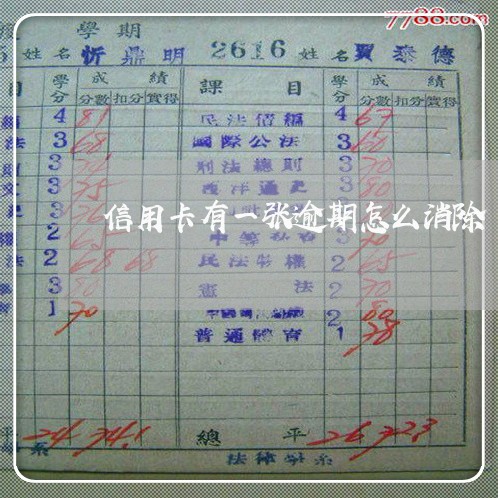 7788.com
學期
姓名 忻鼎明 2616 姓名 賈泰德
目 學分 成績 課目 學分 成績
分數 扣分 實得 分數 扣分 實得
4 81 民法債編 4 67
法 3 68 國際公法 3 60
3 刑法總則 3 70
3 75 西洋通史 3 80
3
信用卡有一张逾期怎么消除
2 65 3 70
法 2 68 68 民法物權 2 65
3 80 憲法 2 70
1 70 2 80
普通體育 1 78
平 24 74.1 總平 26 72.3
系 法律學系